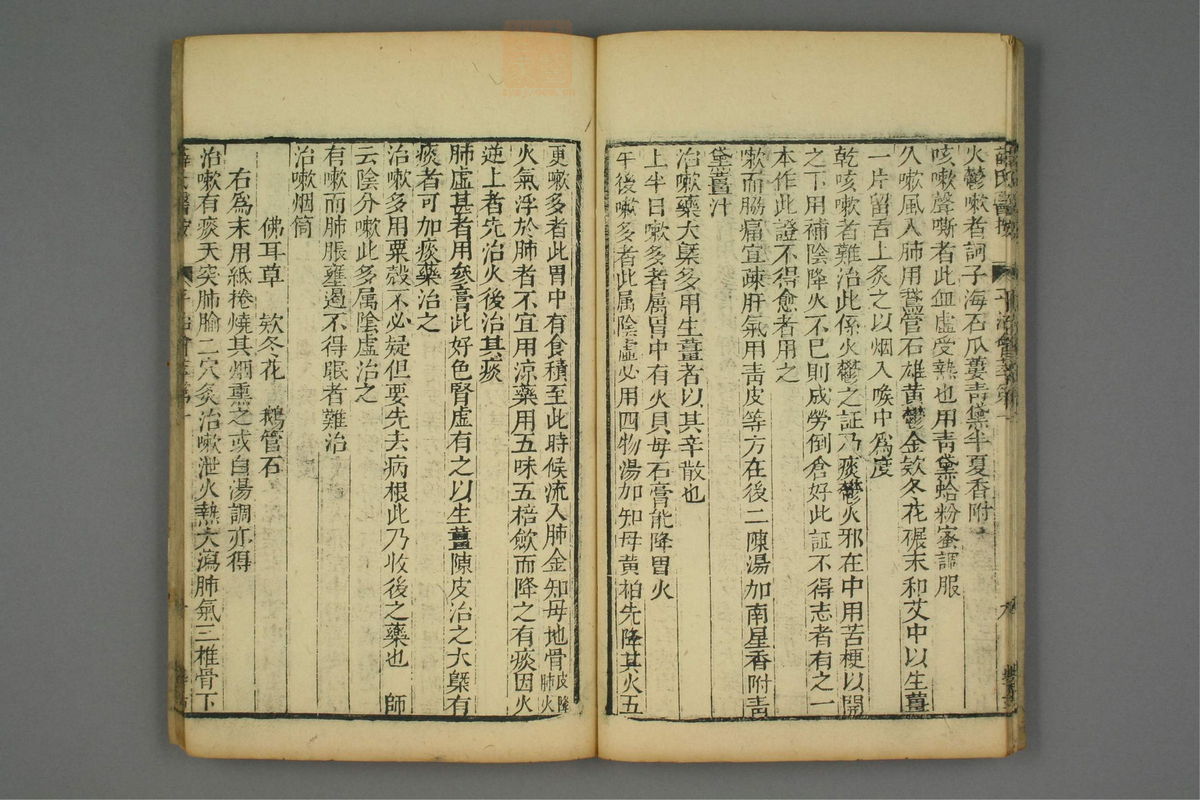 薛氏醫按
平治會萃卷一
九
火鬱嗽者訶子海石瓜蔞青黛半夏香附
咳嗽聲嘶者此血虛受熱也用青黛蛤粉蜜調服
久嗽風入肺用鵞管石雄黃鬱金欵冬花碾末和艾中以生薑
一片留舌上炙之以烟入喉中爲度
乾咳嗽者難治此係火鬱之証乃痰鬱火邪在中用苦梗以開
之下用補陰降火不已則成勞倒倉好此証不得志者有之一
本作此證不得愈者用之
嗽而脇痛宜疎肝氣用靑皮等方在後二陳湯加南星香附靑
黛薑汁
治嗽藥大槩多用生薑者以其辛散也
上半日嗽多者屬胃中有火貝母石膏能降胃火
午後嗽多者此属陰虛必用四物湯加知母黄栢先降其火五
更嗽多者此胃中有食積至此時候流入肺金知母地骨皮降肺火
火氣浮於肺者不宜用凉藥用五味五棓歛而降之有痰因火
逆上者先治火後治其痰
肺虛甚者用參膏此好色腎虛有之以生薑陳皮治之大槩有
痰者可加痰藥治之
治嗽多用粟殼不必疑但要先去病根此乃收後之藥也 師
云陰分嗽此多属陰虛治之
有嗽而肺脹壅遏不得眠者難治
治嗽烟筒
佛耳草 欵冬花 鵝管石
右爲末用紙捲燒其烟熏之或白湯調亦得
治嗽有痰天突肺腧二穴灸治嗽泄火熱大瀉肺氣三椎骨下